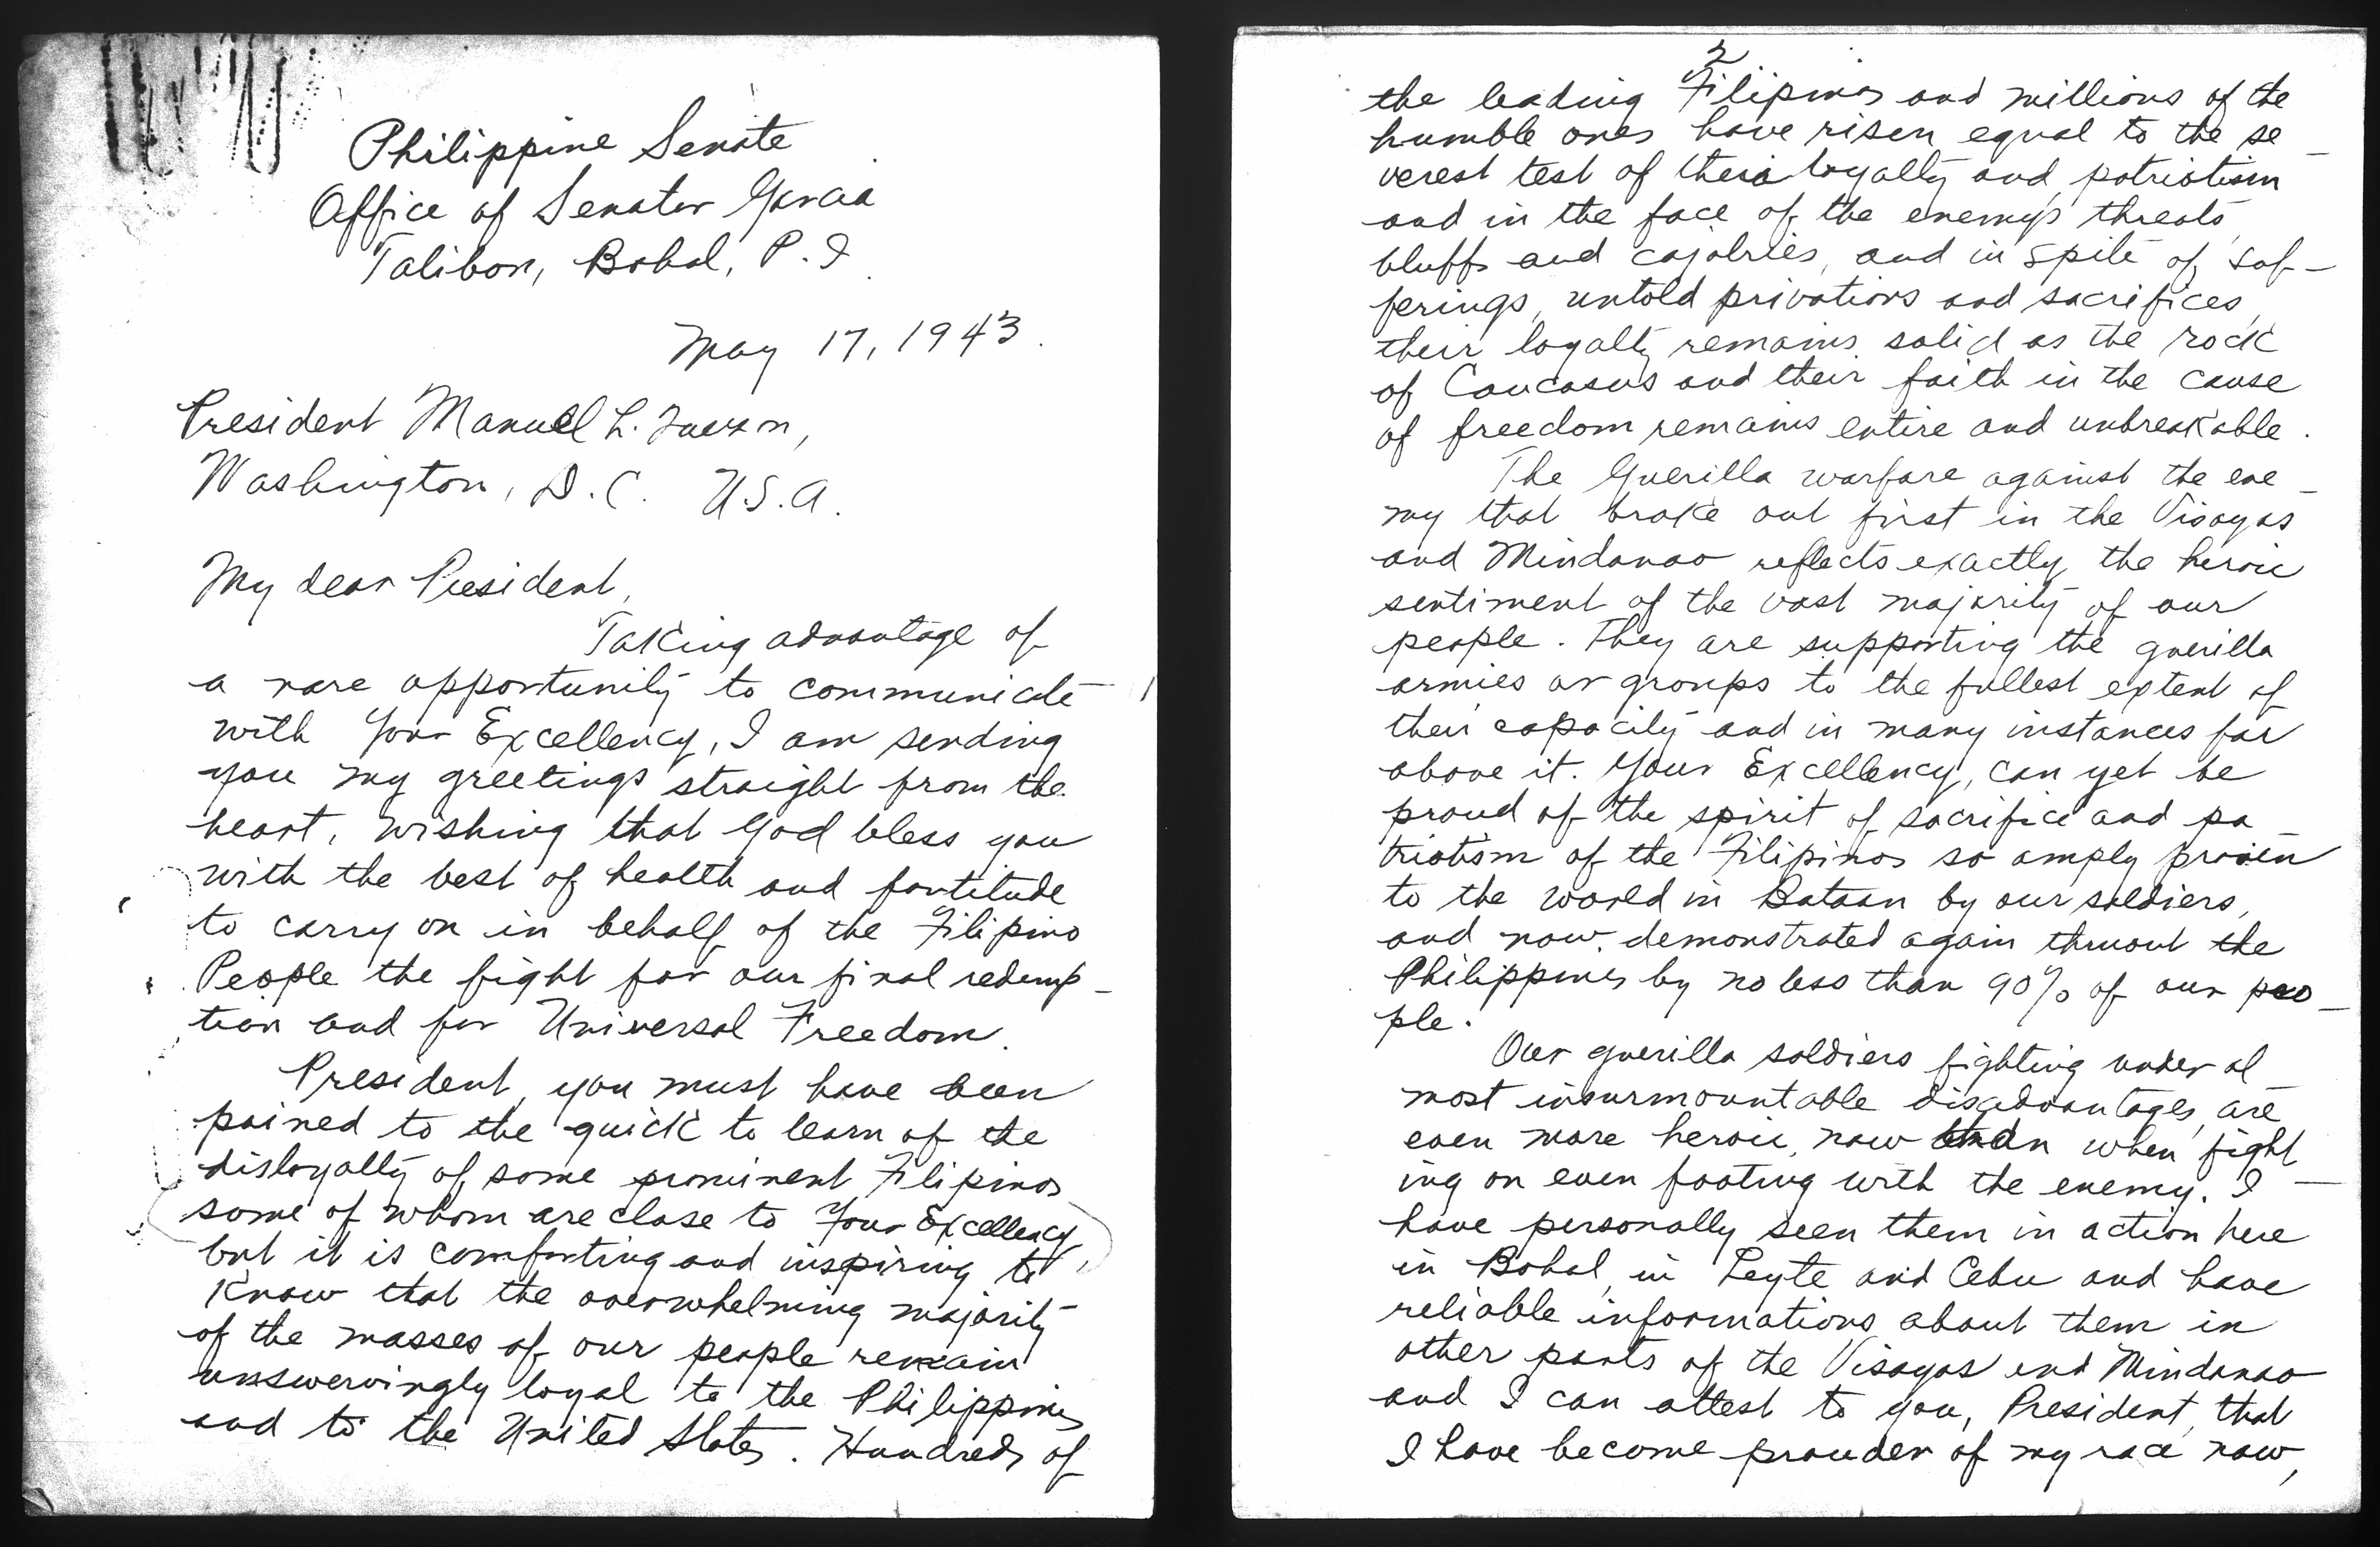 Philippine Senate
Office of Senator Garcia
Talibon, Bohol, P. I
May 17, 1943.
President Manuel L. Quezon,
Washington, D.C. U.S.A.
My dear President,
Taking advantage of
a rare opportunity to communicate
with Your Excellency, I am sending
you my greetings straight from the
heart, wishing that God bless you
with the best of health and fortitude
to carry on in behalf of the Filipino
People the fight for our final redemp-
tion and for Universal Freedom.
President, you must have been
pained to the quick to learn of the
disloyalty of some prominent Filipinos
some of whom are close to Your Excellency,
but it is comforting and inspiring to
know that the overwhelming majority
of the masses of our people remain
unswervingly loyal to the Philippines
and to the United States. Hundreds of
2
the leading Filipinos and millions of the
humble ones have risen equal to the se-
verest test of their loyalty and patriotism
and in the face of the enemy's threats,
bluffs and cajolries, and in spite of suf-
ferings, untold privations and sacrifices,
their loyalty remains solid as the rock
of Caucasus and their faith in the cause
of freedom remains entire and unbreakable.
The Guerilla warfare against the ene-
my that broke out first in the Visayas
and Mindanao reflects exactly the heroic
sentiment of the vast majority of our
people. They are supporting the guerilla
armies or groups to the fullest extent of
their capacity and in many instances far
above it. Your Excellency, can yet be
proud of the spirit of sacrifice and pa-
triotism of the Filipinos so amply proven
to the world in Bataan by our soldiers,
and now demonstrated again thruout the
Philippines by no less than 90% of our peo-
ple.
Our guerilla soldiers fighting under al
most insurmountable disadvantages, are
even more heroic, now than when fight-
ing on even footing with the enemy. I
have personally seen them in action here
in Bohol, in Leyte and Cebu and have
reliable informations about them in
other parts of the Visayas and Mindanao
and I can attest to you, President, that
I have become prouder of my race now,